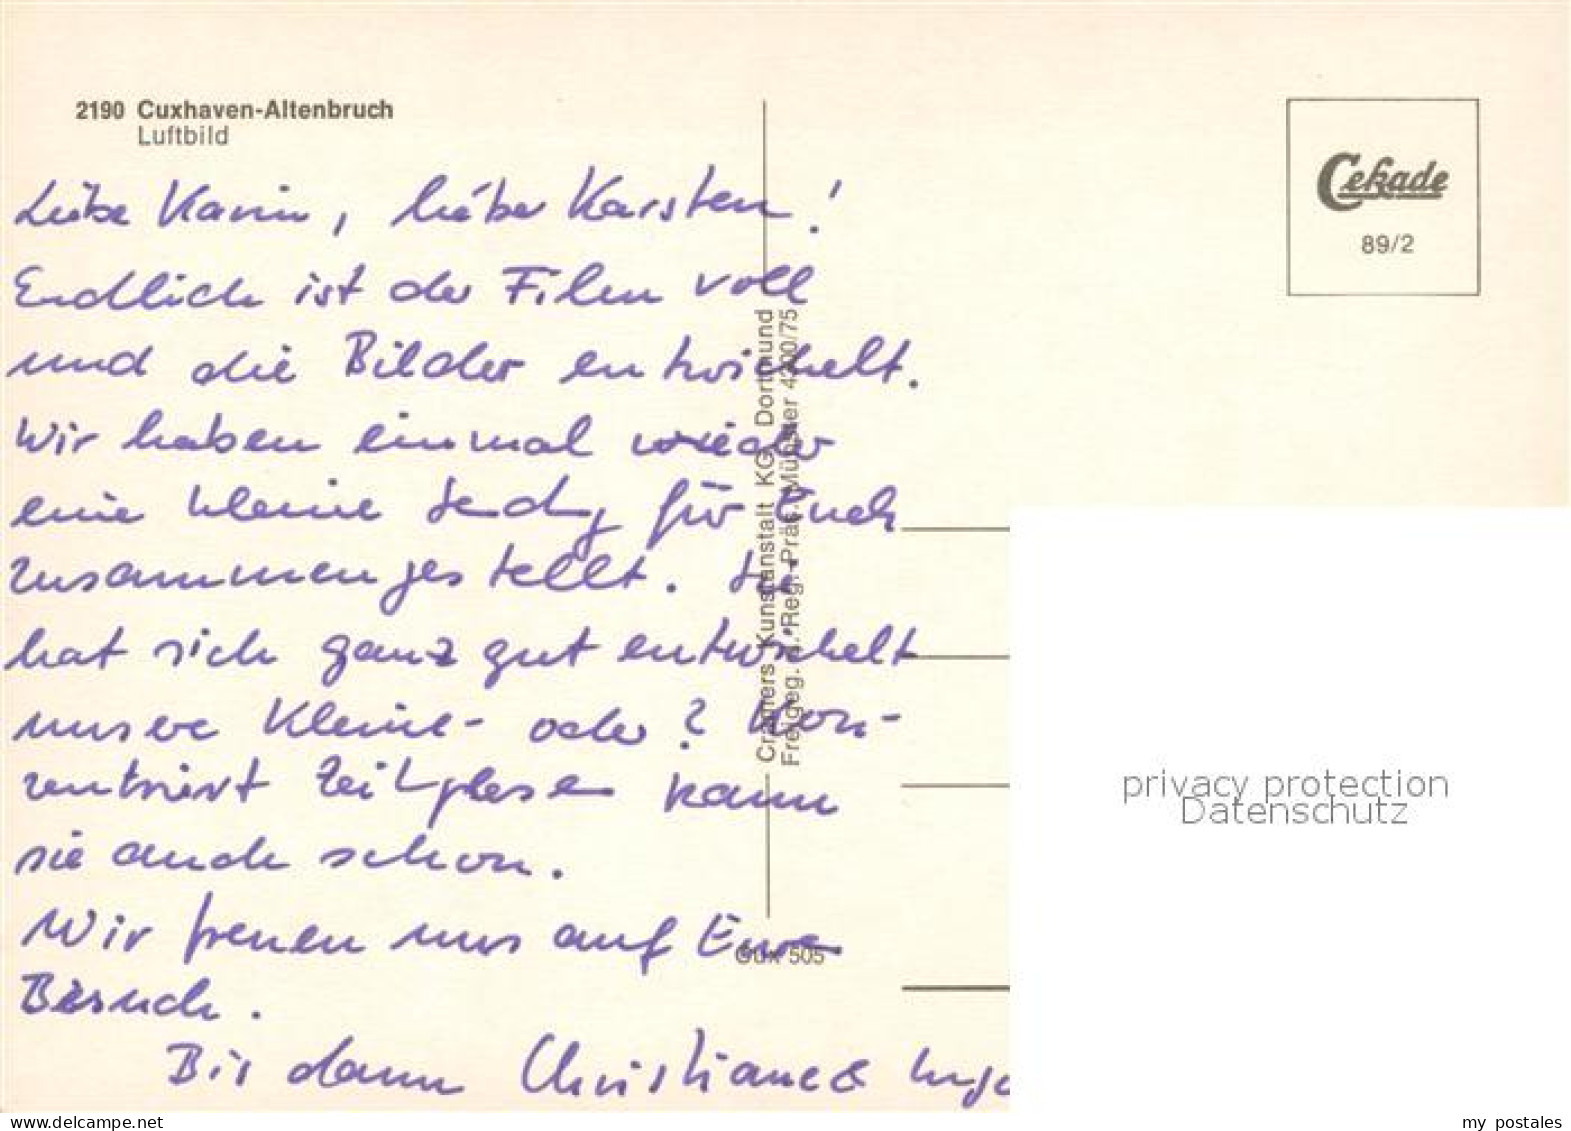 2190 Cuxhaven-Altenbruch
Luftbild
Cekade
89/2
Liebe Karin, lieber Karsten!
Endlich ist der Film voll
und die Bilder entwickelt.
Wir haben einmal wieder
eine kleine Sendg für Euch
zusammengestellt. Sie
hat sich ganz gut entwickelt
unsere Kleine - oder? Kon-
zentriert Zeitg lesen kann
sie auch schon.
Wir freuen uns auf
Besuch.
Bis dann Christiane &
Cramers Kunstanstalt KG, Dortmund
Freigeg. d. Reg.-Präs. Münster 4300/75
Cux 505
privacy protection
Datenschutz
www.delcampe.net
my_postales